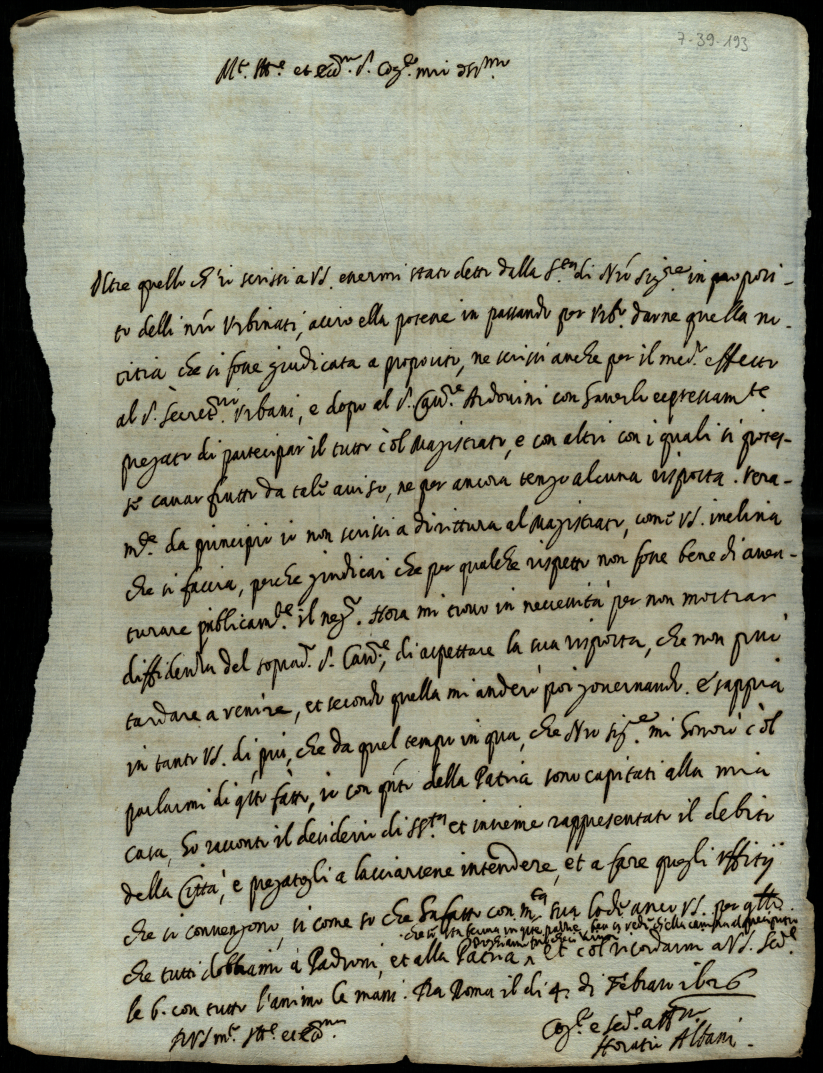 7-39-193
M.to Ill.re et Ecc.mo S. Cog.to mio oss.mo
Oltre quello ch'io scrissi a VS. essermi stato detto dalla S.tà di N'ro Sig.re in proposi-
to delli n'ri Urbinati, acciò ella potesse in passando per Urb.o darne quella no-
titia che si fosse giudicata a proposito, ne scrissi anche per il med.o effetto
al S. Secret.rio Urbani, e dopo al S. Cav.re Ardovini con haverlo espressam.te
pregato di partecipar il tutto col Magistrato, e con altri con i quali si potes-
se cavar frutto da tale aviso, ne per ancora tengo alcuna risposta. Vera-
m.te da principio io non scrissi a dirittura al Magistrato, come VS. inclina
che si faccia, perche giudicai che per qualche rispetto non fosse bene di aven-
turare publicam.te il neg.o. Hora mi trovo in necessità per non mostrar
diffidenza del soprad.o S. Cav.re, di aspettare la sua risposta, che non può
tardare a venire, et secondo quella mi anderò poi governando. E sappia
in tanto VS. di più, che da quel tempo in qua, che N'ro Sig.re mi honorò col
parlarmi di q'sto fatto, io con q'nti della Patria sono capitati alla mia
casa, ho racconto il desiderio di S.S.tà et insieme rappresentato il debito
della Città, e pregatogli a lasciarsene intendere, et a fare quegli uffitij
che si convengono, si come so che ha fatto con m.ta sua lode anco VS. per q'llo
che tutti dobbiamo a Padroni, et alla Patria et col ricordarmi a VS. Ser.e
le b. con tutto l'animo le mani. Da Roma il di 4 di Febraro 1626
D VS m.to Ill.re et Ecc.ma
Cog.to e Ser.e aff.mo
Horatio Albani.